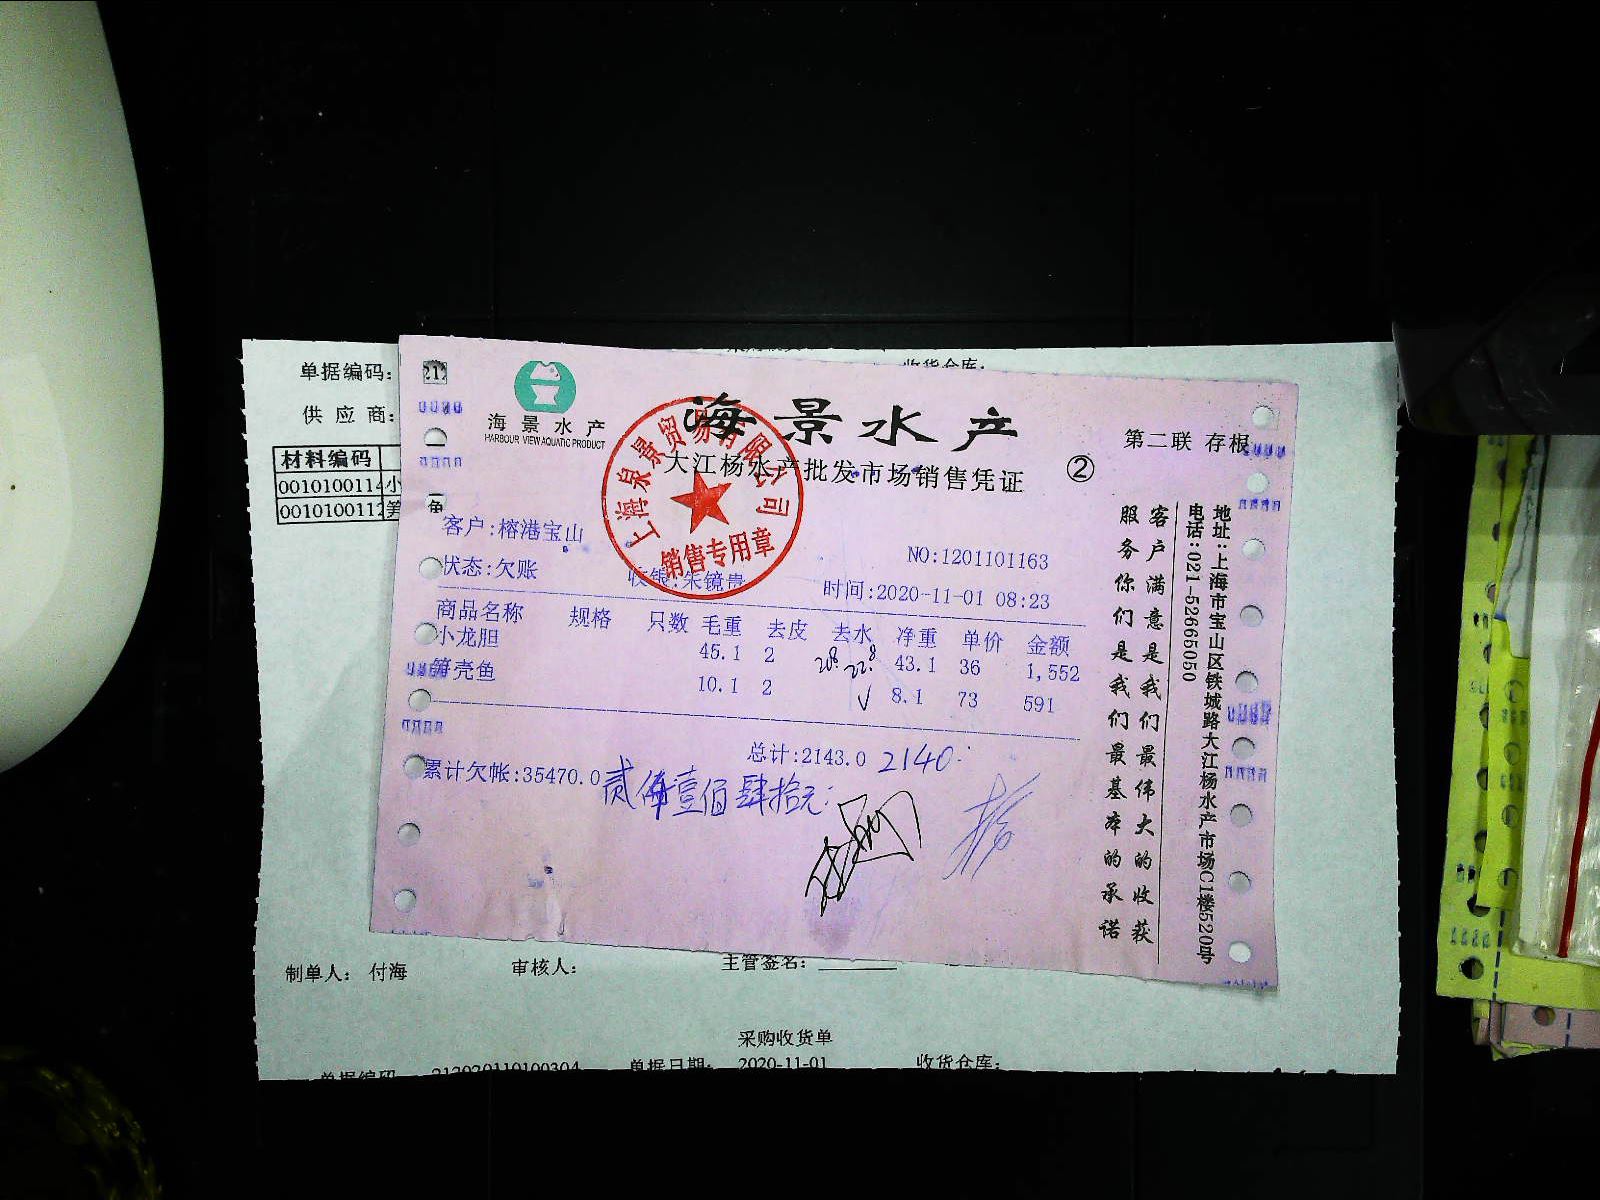 单据编码:
收货仓库:
供 应 商:
材料编码
0010100114 小
0010100112 笋
鱼
212
海景水产
HARBOUR VIEW AQUATIC PRODUCT
海景水产
大江杨水产批发市场销售凭证 ②
第二联 存根
上海泉景贸易有限公司
销售专用章
客户:榕港宝山
NO:1201101163
状态:欠账 收银:朱镜贵 时间:2020-11-01 08:23
商品名称 规格 只数 毛重 去皮 去水 净重 单价 金额
小龙胆 45.1 2 43.1 36 1,552
笋壳鱼 10.1 2 8.1 73 591
总计:2143.0 2140.
累计欠帐:35470.0
贰仟壹佰肆拾元:
客户满意是我们最伟大的收获
服务你们是我们最基本的承诺
地址:上海市宝山区铁城路大江杨水产市场C1楼520号
电话:021-52665050
制单人: 付海 审核人: 主管签名:
采购收货单
单据编码 212020110100304 单据日期: 2020-11-01 收货仓库: